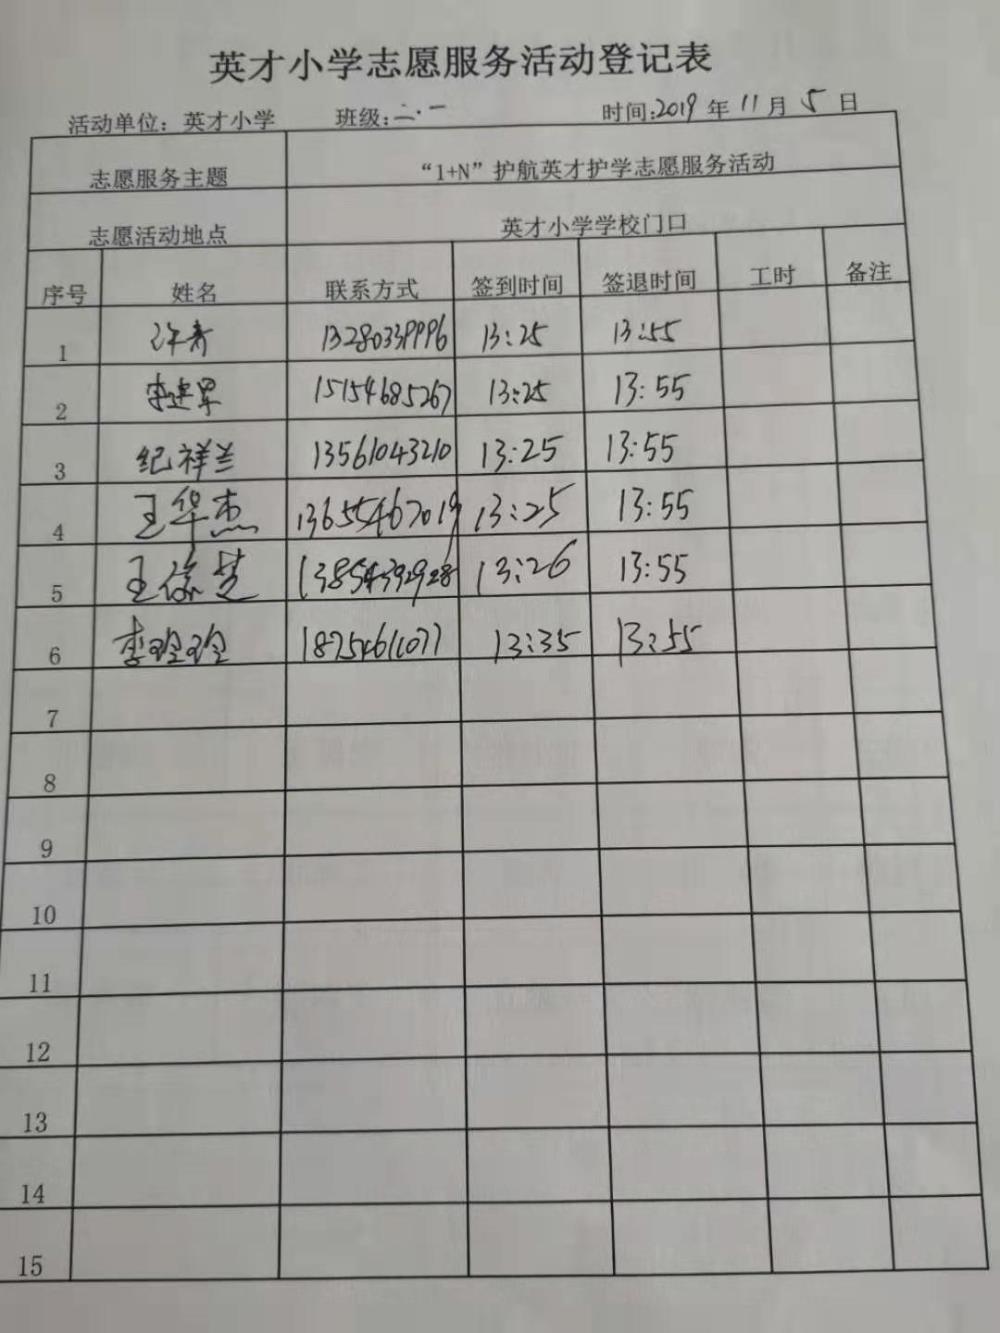 英才小学志愿服务活动登记表
活动单位：英才小学 班级：二·一 时间：2019年11月5日
志愿服务主题 “1+N”护航英才护学志愿服务活动
志愿活动地点 英才小学学校门口
序号 姓名 联系方式 签到时间 签退时间 工时 备注
1 许青 13:25 13:55
2 李建军 15154685267 13:25 13:55
3 纪祥兰 13561043210 13:25 13:55
4 王华杰 13655467019 13:25 13:55
5 13:26 13:55
6 李玲玲 18754611077 13:35 13:55
7
8
9
10
11
12
13
14
15